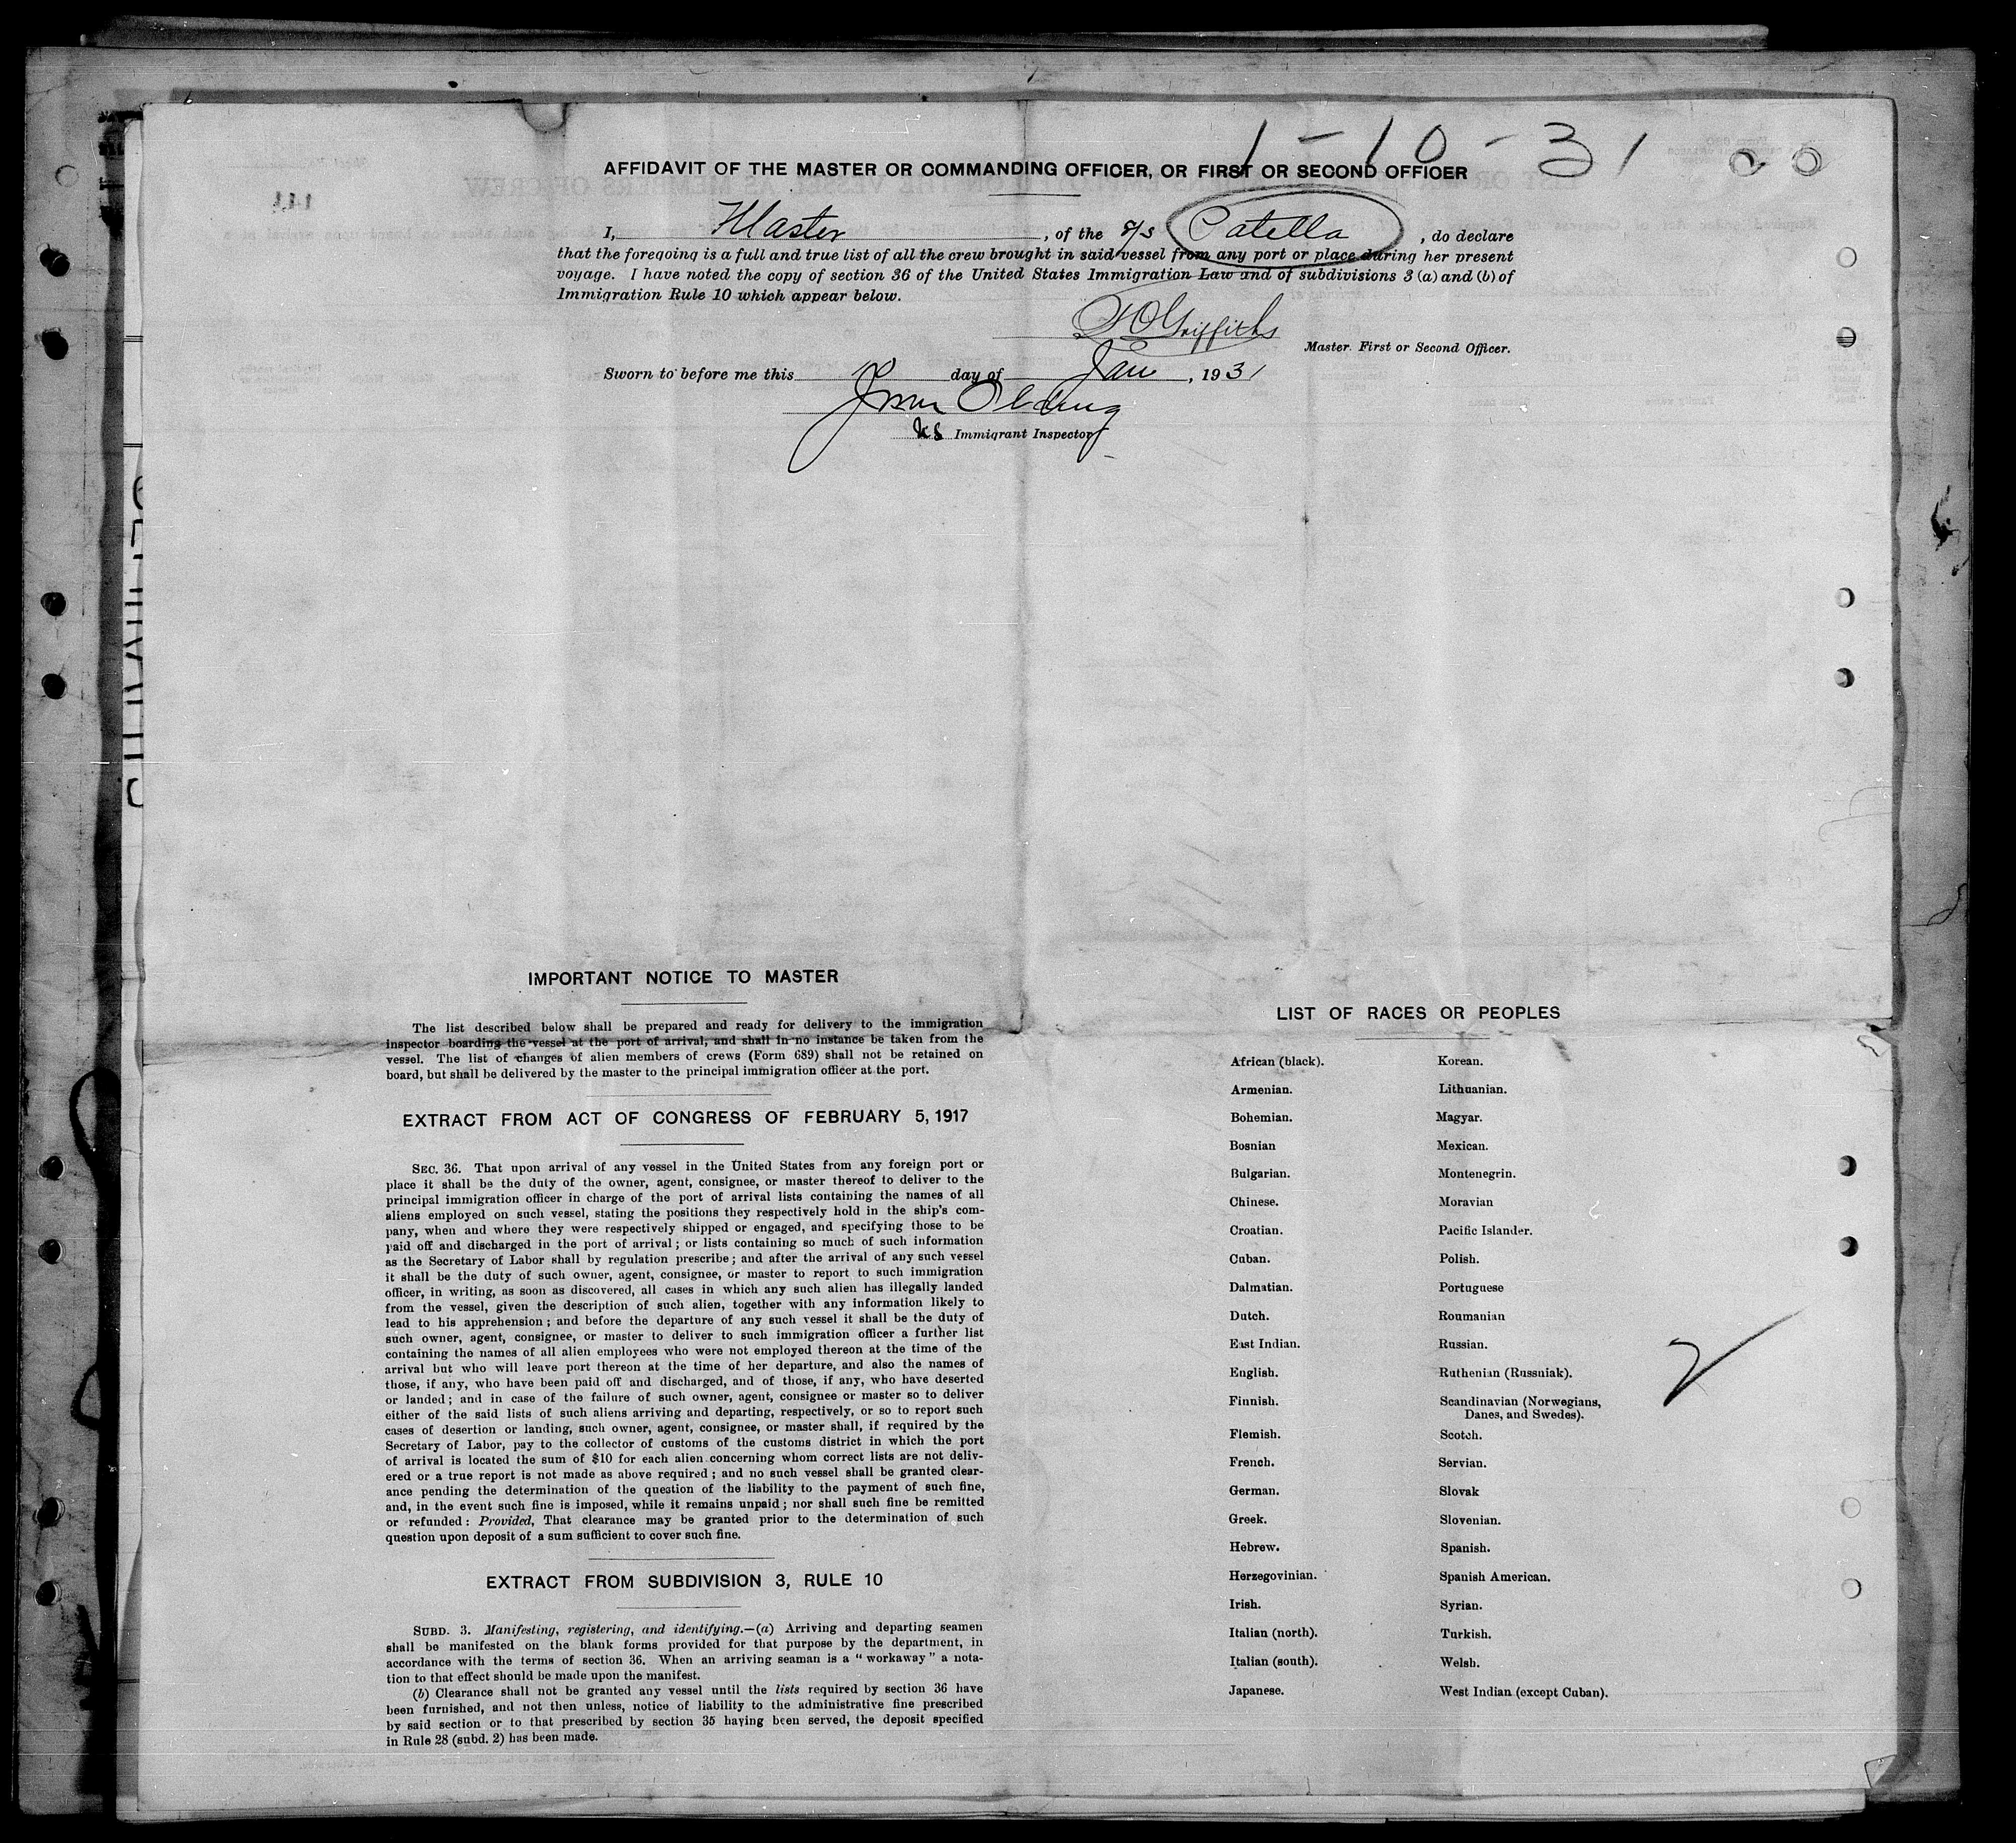 1-10-31
AFFIDAVIT OF THE MASTER OR COMMANDING OFFICER, OR FIRST OR SECOND OFFICER
I, Master, of the S/S Patella, do declare
that the foregoing is a full and true list of all the crew brought in said vessel from any port or place during her present
voyage. I have noted the copy of section 36 of the United States Immigration Law and of subdivisions 3 (a) and (b) of
Immigration Rule 10 which appear below.
Griffiths
Master. First or Second Officer.
Sworn to before me this 10 day of Jan, 1931
US Immigrant Inspector
IMPORTANT NOTICE TO MASTER
The list described below shall be prepared and ready for delivery to the immigration
inspector boarding the vessel at the port of arrival, and shall in no instance be taken from the
vessel. The list of changes of alien members of crews (Form 689) shall not be retained on
board, but shall be delivered by the master to the principal immigration officer at the port.
EXTRACT FROM ACT OF CONGRESS OF FEBRUARY 5, 1917
SEC. 36. That upon arrival of any vessel in the United States from any foreign port or
place it shall be the duty of the owner, agent, consignee, or master thereof to deliver to the
principal immigration officer in charge of the port of arrival lists containing the names of all
aliens employed on such vessel, stating the positions they respectively hold in the ship's com-
pany, when and where they were respectively shipped or engaged, and specifying those to be
paid off and discharged in the port of arrival; or lists containing so much of such information
as the Secretary of Labor shall by regulation prescribe; and after the arrival of any such vessel
it shall be the duty of such owner, agent, consignee, or master to report to such immigration
officer, in writing, as soon as discovered, all cases in which any such alien has illegally landed
from the vessel, given the description of such alien, together with any information likely to
lead to his apprehension; and before the departure of any such vessel it shall be the duty of
such owner, agent, consignee, or master to deliver to such immigration officer a further list
containing the names of all alien employees who were not employed thereon at the time of the
arrival but who will leave port thereon at the time of her departure, and also the names of
those, if any, who have been paid off and discharged, and of those, if any, who have deserted
or landed; and in case of the failure of such owner, agent, consignee or master so to deliver
either of the said lists of such aliens arriving and departing, respectively, or so to report such
cases of desertion or landing, such owner, agent, consignee, or master shall, if required by the
Secretary of Labor, pay to the collector of customs of the customs district in which the port
of arrival is located the sum of $10 for each alien concerning whom correct lists are not deliv-
ered or a true report is not made as above required; and no such vessel shall be granted clear-
ance pending the determination of the question of the liability to the payment of such fine,
and, in the event such fine is imposed, while it remains unpaid; nor shall such fine be remitted
or refunded: Provided, That clearance may be granted prior to the determination of such
question upon deposit of a sum sufficient to cover such fine.
EXTRACT FROM SUBDIVISION 3, RULE 10
SUBD. 3. Manifesting, registering, and identifying.—(a) Arriving and departing seamen
shall be manifested on the blank forms provided for that purpose by the department, in
accordance with the terms of section 36. When an arriving seaman is a "workaway" a nota-
tion to that effect should be made upon the manifest.
(b) Clearance shall not be granted any vessel until the lists required by section 36 have
been furnished, and not then unless, notice of liability to the administrative fine prescribed
by said section or to that prescribed by section 35 having been served, the deposit specified
in Rule 28 (subd. 2) has been made.
LIST OF RACES OR PEOPLES
African (black).
Armenian.
Bohemian.
Bosnian
Bulgarian.
Chinese.
Croatian.
Cuban.
Dalmatian.
Dutch.
East Indian.
English.
Finnish.
Flemish.
French.
German.
Greek.
Hebrew.
Herzegovinian.
Irish.
Italian (north).
Italian (south).
Japanese.
Korean.
Lithuanian.
Magyar.
Mexican.
Montenegrin.
Moravian
Pacific Islander.
Polish.
Portuguese
Roumanian
Russian.
Ruthenian (Russniak).
Scandinavian (Norwegians,
Danes, and Swedes).
Scotch.
Servian.
Slovak
Slovenian.
Spanish.
Spanish American.
Syrian.
Turkish.
Welsh.
West Indian (except Cuban).
2